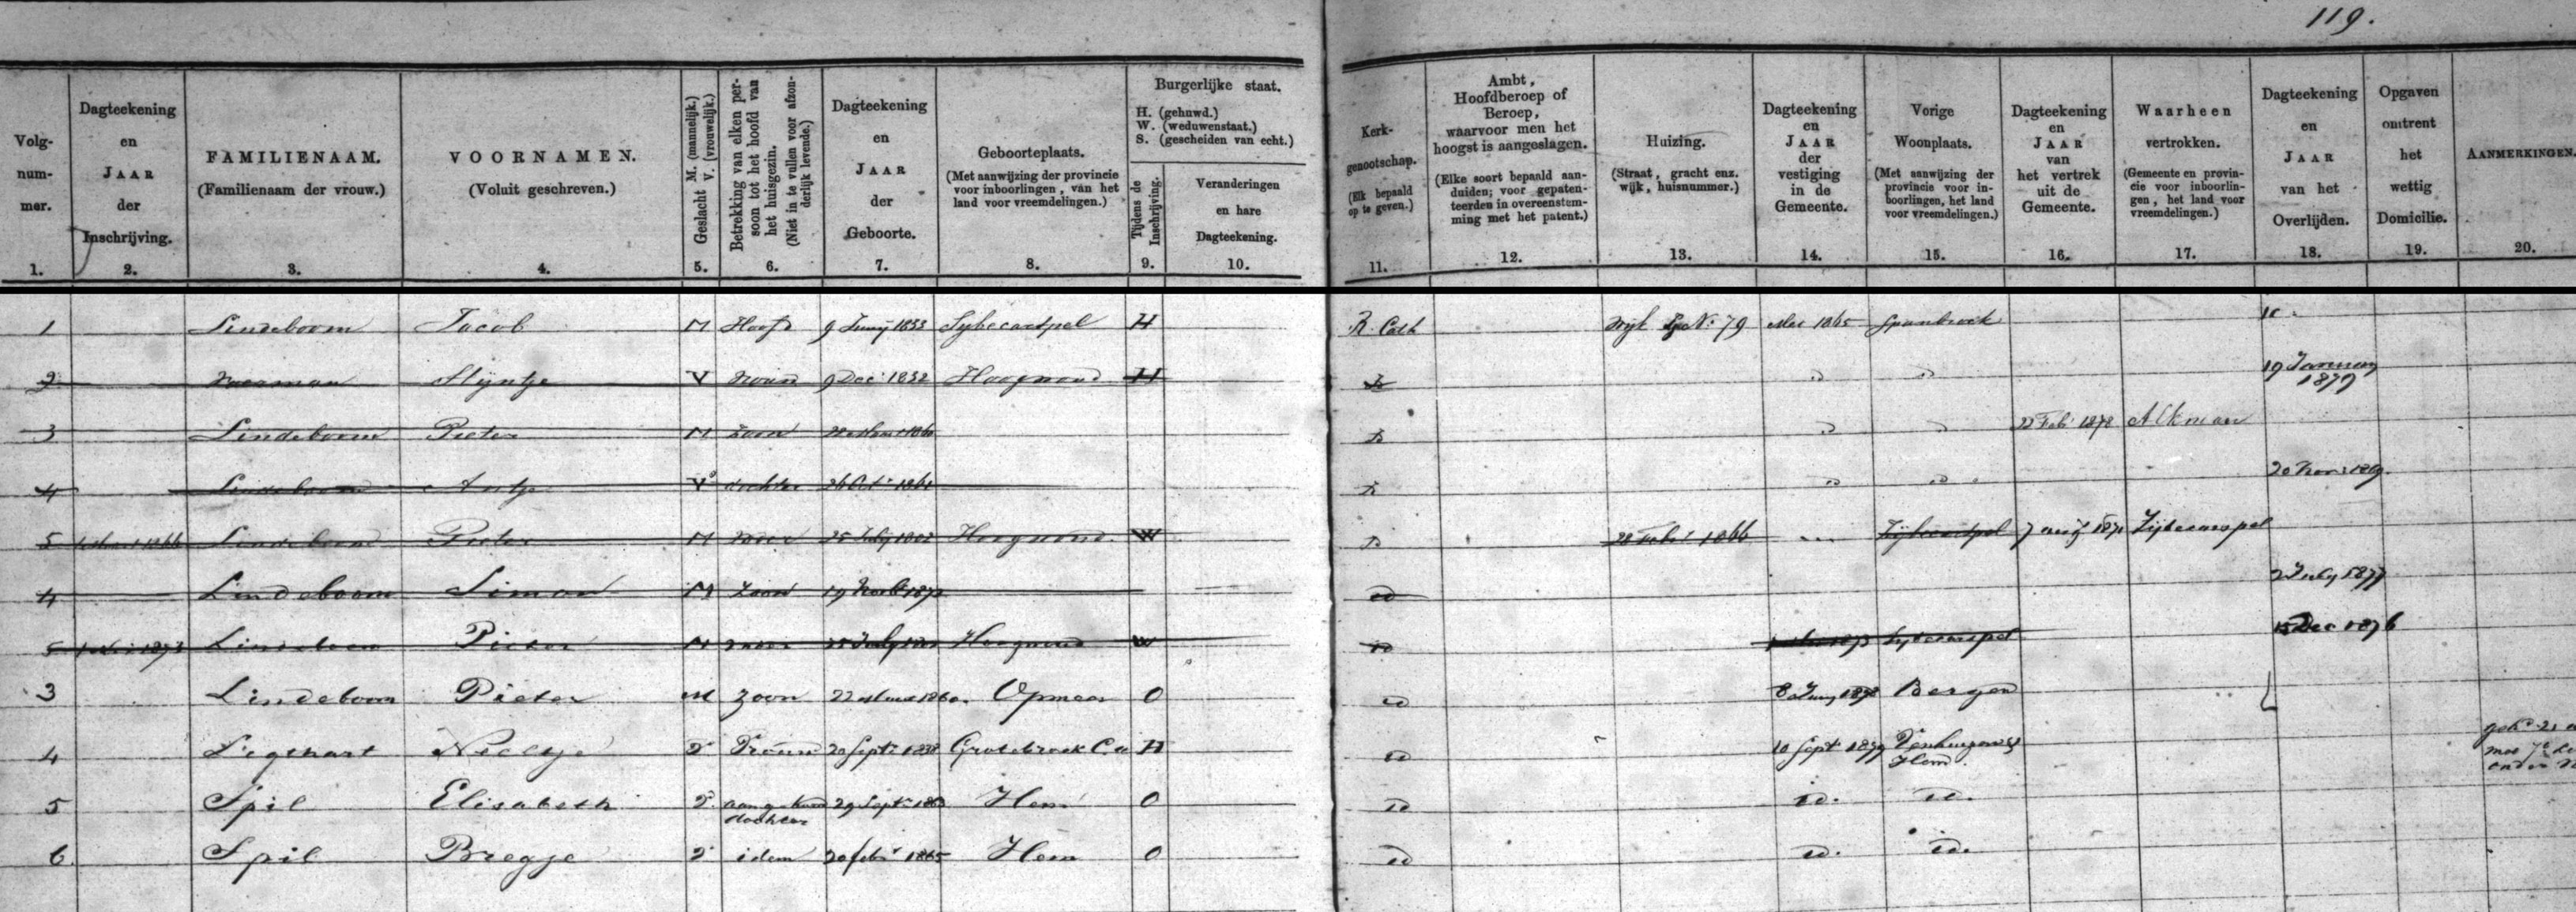 119.
Volg-
num-
mer.
1.
Dagteekening
en
JAAR
der
Inschrijving.
2.
FAMILIENAAM.
(Familienaam der vrouw.)
3.
VOORNAMEN.
(Voluit geschreven.)
4.
Geslacht M. (mannelijk.)
V. (vrouwelijk.)
5.
Betrekking van elken per-
soon tot het hoofd van
het huisgezin.
(Niet in te vullen voor afzon-
derlijk levende.)
6.
Dagteekening
en
JAAR
der
Geboorte.
7.
Geboorteplaats.
(Met aanwijzing der provincie
voor inboorlingen, van het
land voor vreemdelingen.)
8.
Burgerlijke staat.
H. (gehuwd.)
W. (weduwenstaat.)
S. (gescheiden van echt.)
Tijdens de
Inschrijving.
9.
Veranderingen
en hare
Dagteekening.
10.
Kerk-
genootschap.
(Elk bepaald
op te geven.)
11.
Ambt,
Hoofdberoep of
Beroep,
waarvoor men het
hoogst is aangeslagen.
(Elke soort bepaald aan-
duiden; voor gepaten-
teerden in overeenstem-
ming met het patent.)
12.
Huizing.
(Straat, gracht enz.
wijk, huisnummer.)
13.
Dagteekening
en
JAAR
der
vestiging
in de
Gemeente.
14.
Vorige
Woonplaats.
(Met aanwijzing der
provincie voor in-
boorlingen, het land
voor vreemdelingen.)
15.
Dagteekening
en
JAAR
van
het vertrek
uit de
Gemeente.
16.
Waarheen
vertrokken.
(Gemeente en provin-
cie voor inboorlin-
gen, het land voor
vreemdelingen.)
17.
Dagteekening
en
JAAR
van het
Overlijden.
18.
Opgaven
omtrent
het
wettig
Domicilie.
19.
AANMERKINGEN.
20.
1 Lindeboom Jacob M Hoofd 9 Junij 1833 Sybecarspel H R. Cath Wijk No 79 Mei 1865 Spanbroek
2 Stijntje V vrouw 9 Dec 1832 Hoogwoud H 19 January
1879
3 Lindeboom Pieter M zoon 22 Febr 1878 Alkmaar
4 Lindeboom Antje V dochter 20 Nov 1869
5 Lindeboom Pieter M 25 July 1802 Hoogwoud W 28 Febr 1866 Zijbecarspel Zijbecarspel
4 Lindeboom Simon M zoon id 2 July 1877
5 Lindeboom Pieter M 25 July Hoogwoud W id Sybecarspel Dec 1876
3 Lindeboom Pieter M zoon 22 1860 Opmeer O id Bergen
4 Ligthart Neeltje V Vrouw 20 Septr 1838 Grotebroek H id 10 Sept 1879 Venhuizen
Hem
5 Spil Elisabeth V 29 Septr Hem O id id. id.
dochter
6 Spil Bregje V idem 20 febr 1865 Hem O id id. id.